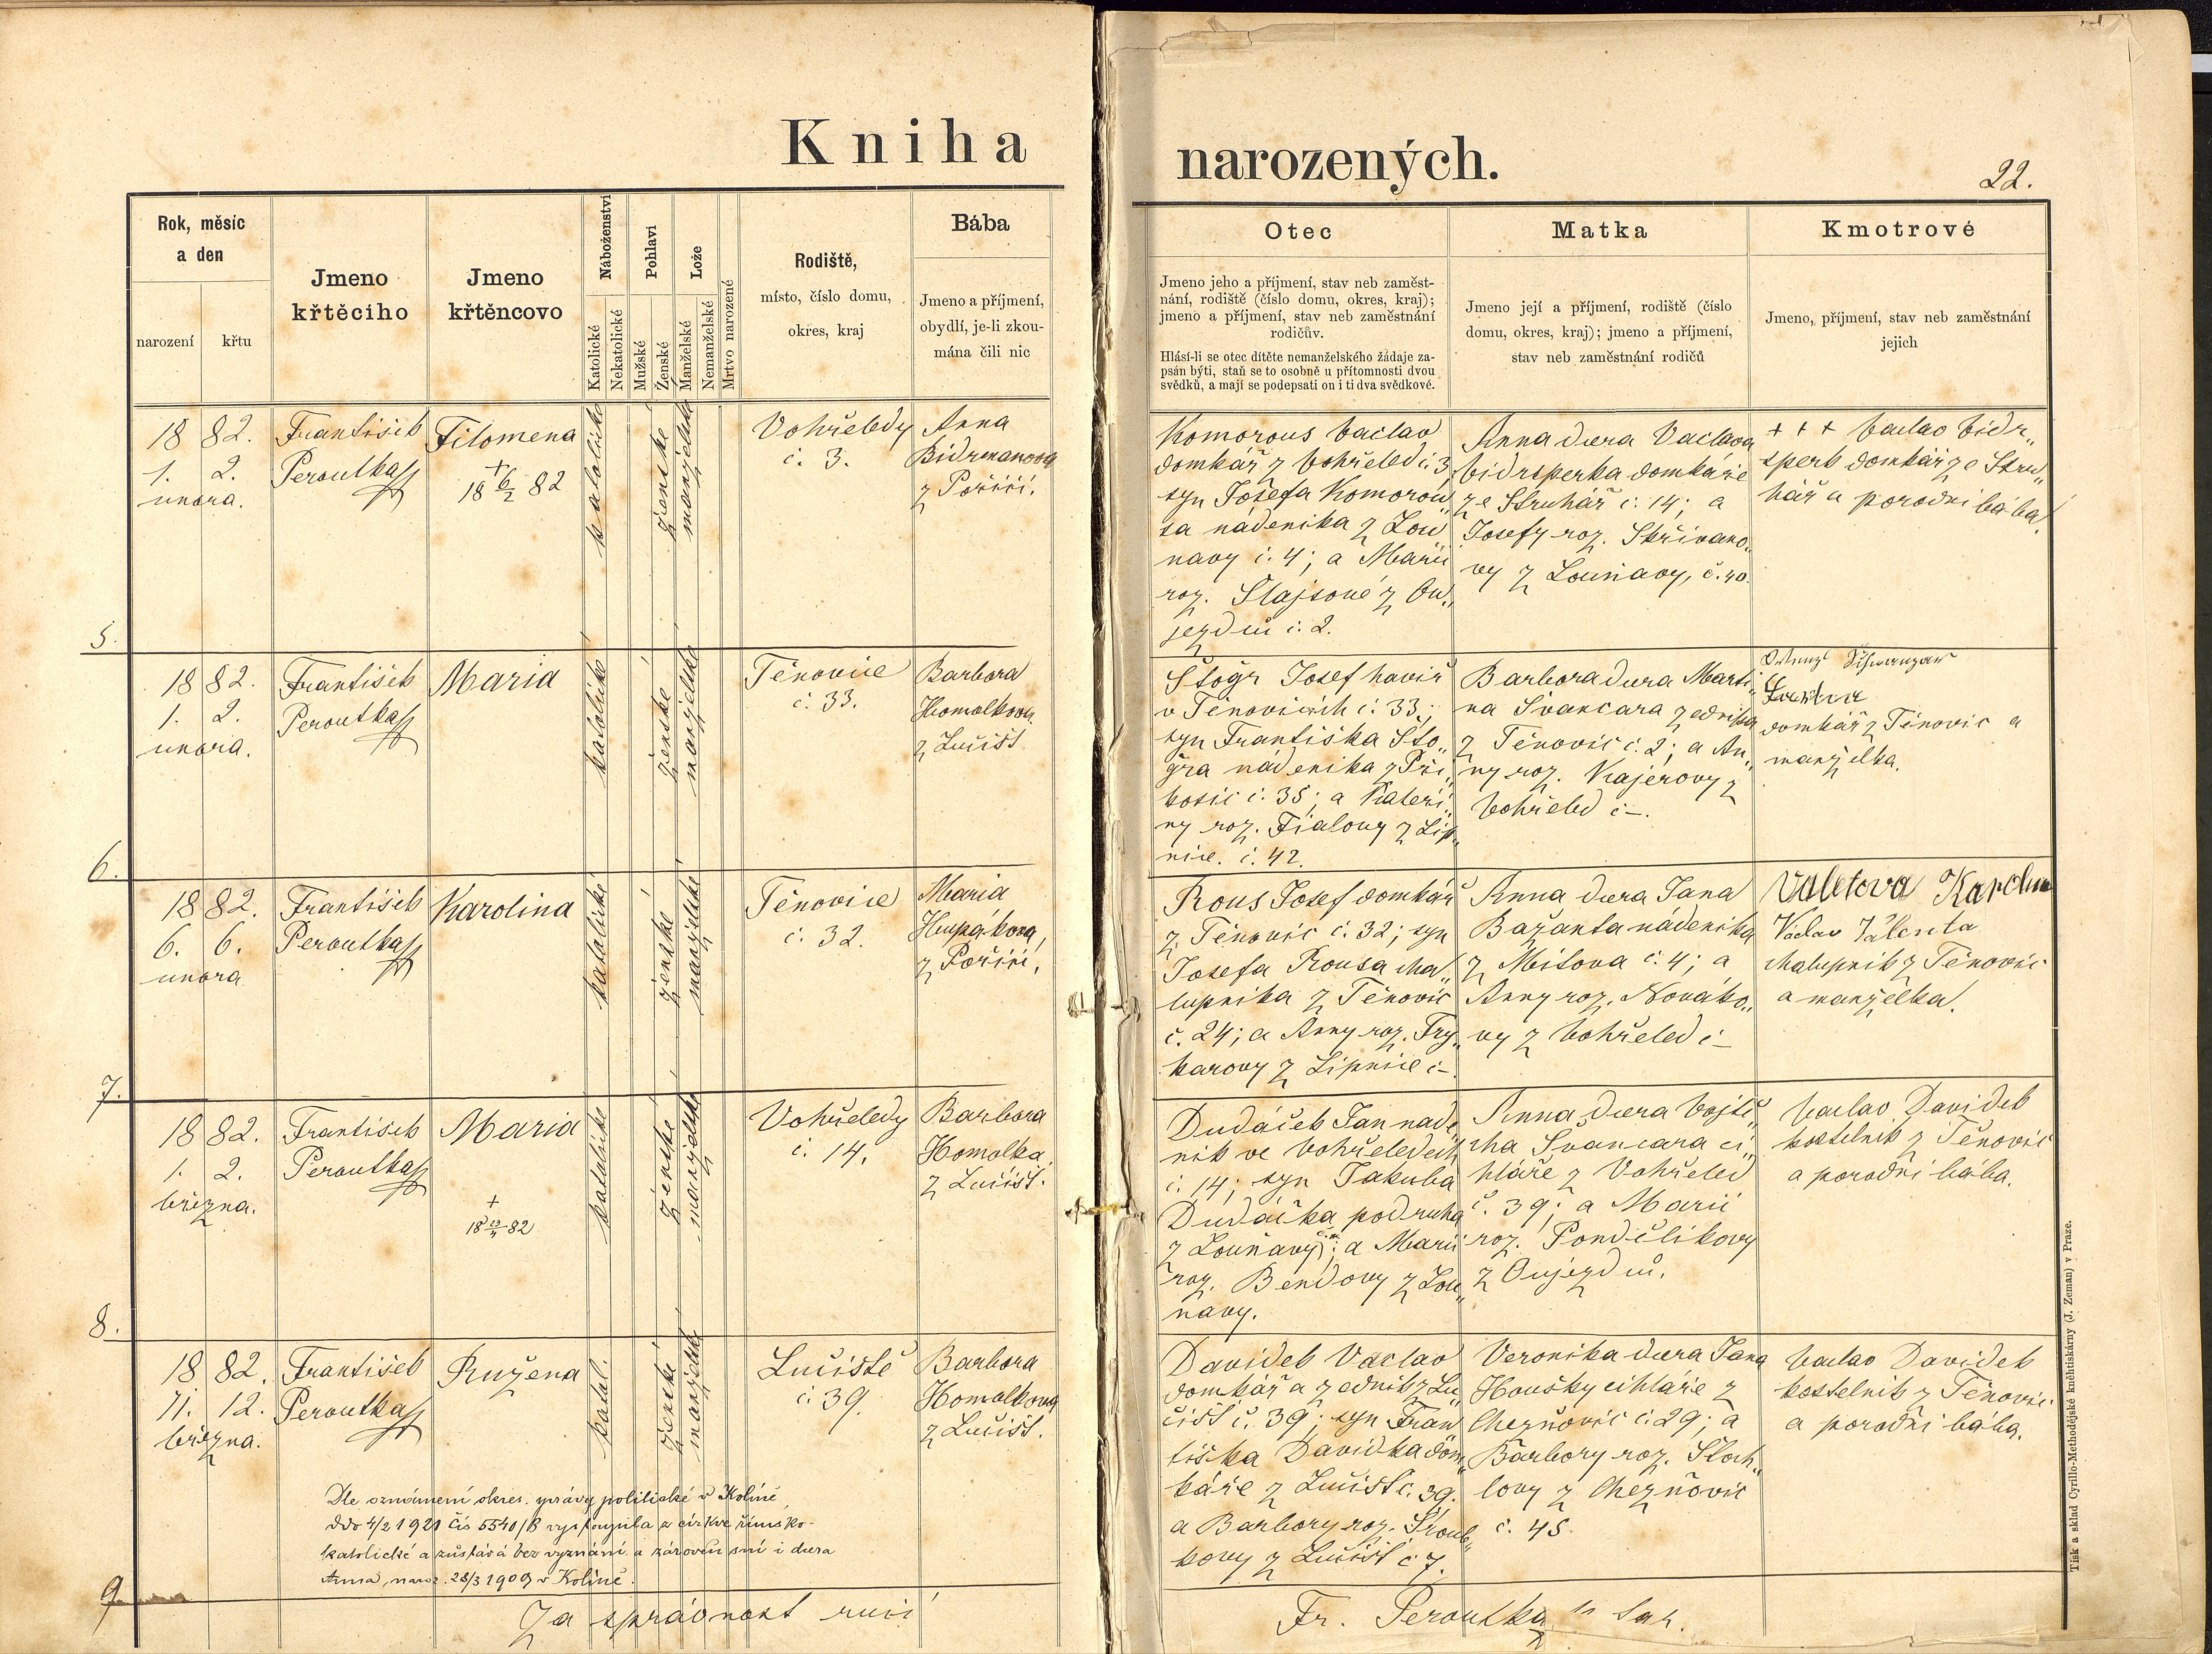 Kniha narozených.
22.
Rok, měsíc
a den
narození
křtu
Jmeno
křtěcího
Jmeno
křtěncovo
Náboženství
Katolické
Nekatolické
Pohlaví
Mužské
Ženské
Lože
Manželské
Nemanželské
Mrtvo narozené
Rodiště,
místo, číslo domu,
okres, kraj
Bába
Jmeno a příjmení,
obydlí, je-li zkou-
mána čili nic
Otec
Jmeno jeho a příjmení, stav neb zaměst-
nání, rodiště (číslo domu, okres, kraj);
jmeno a příjmení, stav neb zaměstnání
rodičův.
Hlásí-li se otec dítěte nemanželského žádaje za-
psán býti, staň se to osobně u přítomnosti dvou
svědků, a mají se podepsati on i ti dva svědkové.
Matka
Jmeno její a příjmení, rodiště (číslo
domu, okres, kraj); jmeno a příjmení,
stav neb zaměstnání rodičů
Kmotrové
Jmeno, příjmení, stav neb zaměstnání
jejich
5.
1882.
1. 2.
unora.
František
Peroutka
Filomena
+
18 6/2 82
katolické
ženské
manželské
Vohřeledy
č. 3.
Anna
Bidrmanova
z Poříčí.
Komorous Vaclav
domkář z Vohřeled č. 3,
syn Josefa Komorou„
sa nádenika z Lou„
ňavy č. 4; a Marii
roz. Šlajsové z Ou„
jezdců č. 2.
Anna dcera Vaclava
Vidrsperka domkáře
ze Struhář č. 14; a
Josefy roz. Skřivano„
vy z Louňavy, č. 40.
+ + + Vaclav Vidr„
sperk domkář ze Stru„
hář a porodní bába.
6.
1882.
1. 2.
unora.
František
Peroutka
Maria
katolické
ženské
manželské
Těnovice
č. 33.
Barbora
Homolkova
z Lučišť.
Štogr Josef havíř
v Těnovicích č. 33;
syn Františka Što„
gra nádenika z Při„
kosic č. 35; a Kateři„
ny roz. Fialovy z Lip„
nice. č. 42.
Barbora dcera Marti„
na Švancara zednika
z Těnovic č. 2; a An„
ny roz. Krajerovy z
Vohřeled č –.
domkář z Těnovic a
manželka.
7.
1882.
6. 6.
unora
František
Peroutka
Karolina
katolické
ženské
manželské
Těnovice
č. 32.
Maria
Hupákova,
z Poříčí,
Rous Josef domkář
z Těnovic č. 32; syn
Josefa Rousa cha„
lupnika z Těnovic
č. 24; a Anny roz. Fry„
karovy z Lipnice č –.
Anna dcera Jana
Bažanta nádenika
z Mitova č. 4; a
Anny roz. Nováko„
vy z Vohřeled č –
Valetova Karolina
Václav Valenta
chalupnik z Těnovic
a manželka.
8.
1882.
1. 2.
března.
František
Peroutka
Maria
+
katolické
ženské
manželské
Vohřeledy
č. 14.
Barbora
Homolka,
z Lučišť.
Dudáček Jan nade„
nik ve Vohřeledech
č. 14; syn Jakuba
Dudáčka podruha
z Louňavy; a Marii
roz. Bendovy z Lou„
ňavy.
Anna dcera Vojtě„
cha Švancara ci„
hláře z Vohřeled
č. 39; a Marii
roz. Pondělikovy
z Oujezdců.
Vaclav Davidek
kostelnik z Těnovic
a porodní bába.
9.
1882.
11. 12.
března.
František
Peroutka
Ružena
katol.
ženské
manželské
Lučiště
č. 39.
Barbora
Homolkova
z Lučišť.
Davidek Vaclav
domkář a zednik z Lu„
čišť č. 39; syn Fran„
tiška Davidka dom„
káře z Lučišť č. 39.
a Barbory roz. Šroub„
kovy z Lučišť č 7.
Veronika dcera Jana
Housky cihláře z
Cheznovic č. 29; a
Barbory roz. Štoch„
lovy z Cheznovic
č. 45.
Vaclav Davidek
kostelnik z Těnovic
a porodní bába.
Dle oznámení okres. správy politické v Kolíně
ddo 4/2 1921 čís 5540/B vystoupila z církve římsko-
katolické a zůstává bez vyznání a zároveň s ní i dcera
Anna, naroz. 28/3 1909 v Kolíně.
Za správnost ručí
Fr. Peroutka
Tisk a sklad Cyrillo-Methodějské knihtiskárny (J. Zeman) v Praze.